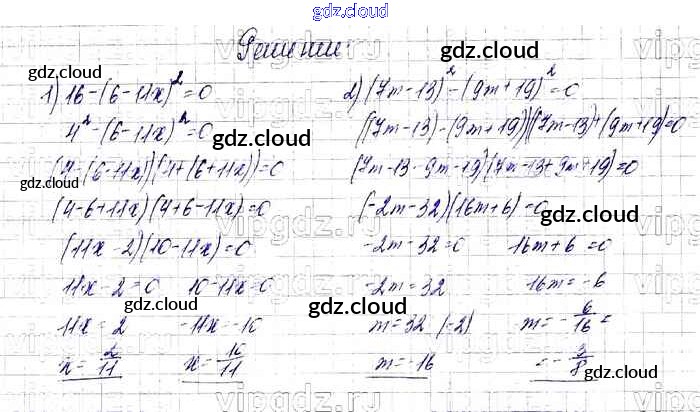 gdz.cloud
Решение:
1) 16-(6-11x)²=0
4²-(6-11x)²=0
(4-(6-11x))(4+(6+11x))=0
(4-6+11x)(4+6-11x)=0
(11x-2)(10-11x)=0
11x-2=0 10-11x=0
11x=2 -11x=-10
x=2/11 x=10/11
2) (7m-13)²-(9m+19)²=0
((7m-13)-(9m+19))((7m-13)+(9m+19))=0
(7m-13-9m-19)(7m-13+9m+19)=0
(-2m-32)(16m+6)=0
-2m-32=0 16m+6=0
-2m=32 16m=-6
m=32:(-2) m=-6/16=
m=-16 =-3/8
gdz.cloud
gdz.cloud
gdz.cloud
gdz.cloud
gdz.cloud
gdz.cloud
gdz.cloud
gdz.cloud
gdz.cloud